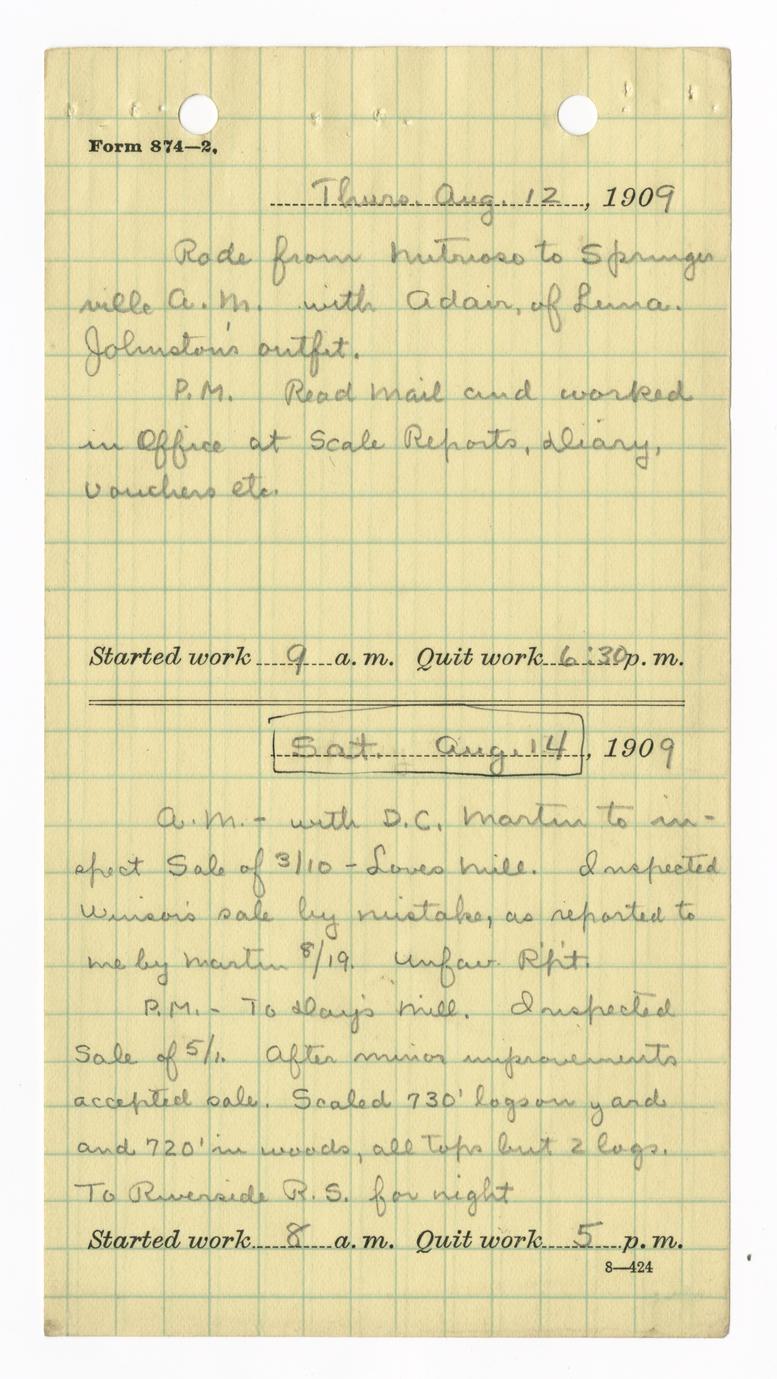 Form 874—2.
Thurs. Aug. 12, 1909
Rode from Nutrioso to Springer
ville A.M. with Adair, of Luna.
Johnston's outfit.
P.M. Read mail and worked
in Office at Scale Reports, Diary,
Vouchers etc.
Started work 9 a. m. Quit work 6:30 p. m.
Sat. Aug. 14, 1909
A.M. - with D.C. Martin to in-
spect Sale of 3/10 - Loves Mill. Inspected
Winsor's sale by mistake, as reported to
me by Martin 8/19. Unfav. R'p't.
P.M. - To Day's Mill. Inspected
Sale of 5/1. After minor improvements
accepted sale. Scaled 730' logs on yard
and 720' in woods, all tops but 2 logs.
To Riverside R.S. for night
Started work 8 a. m. Quit work 5 p. m.
8—424